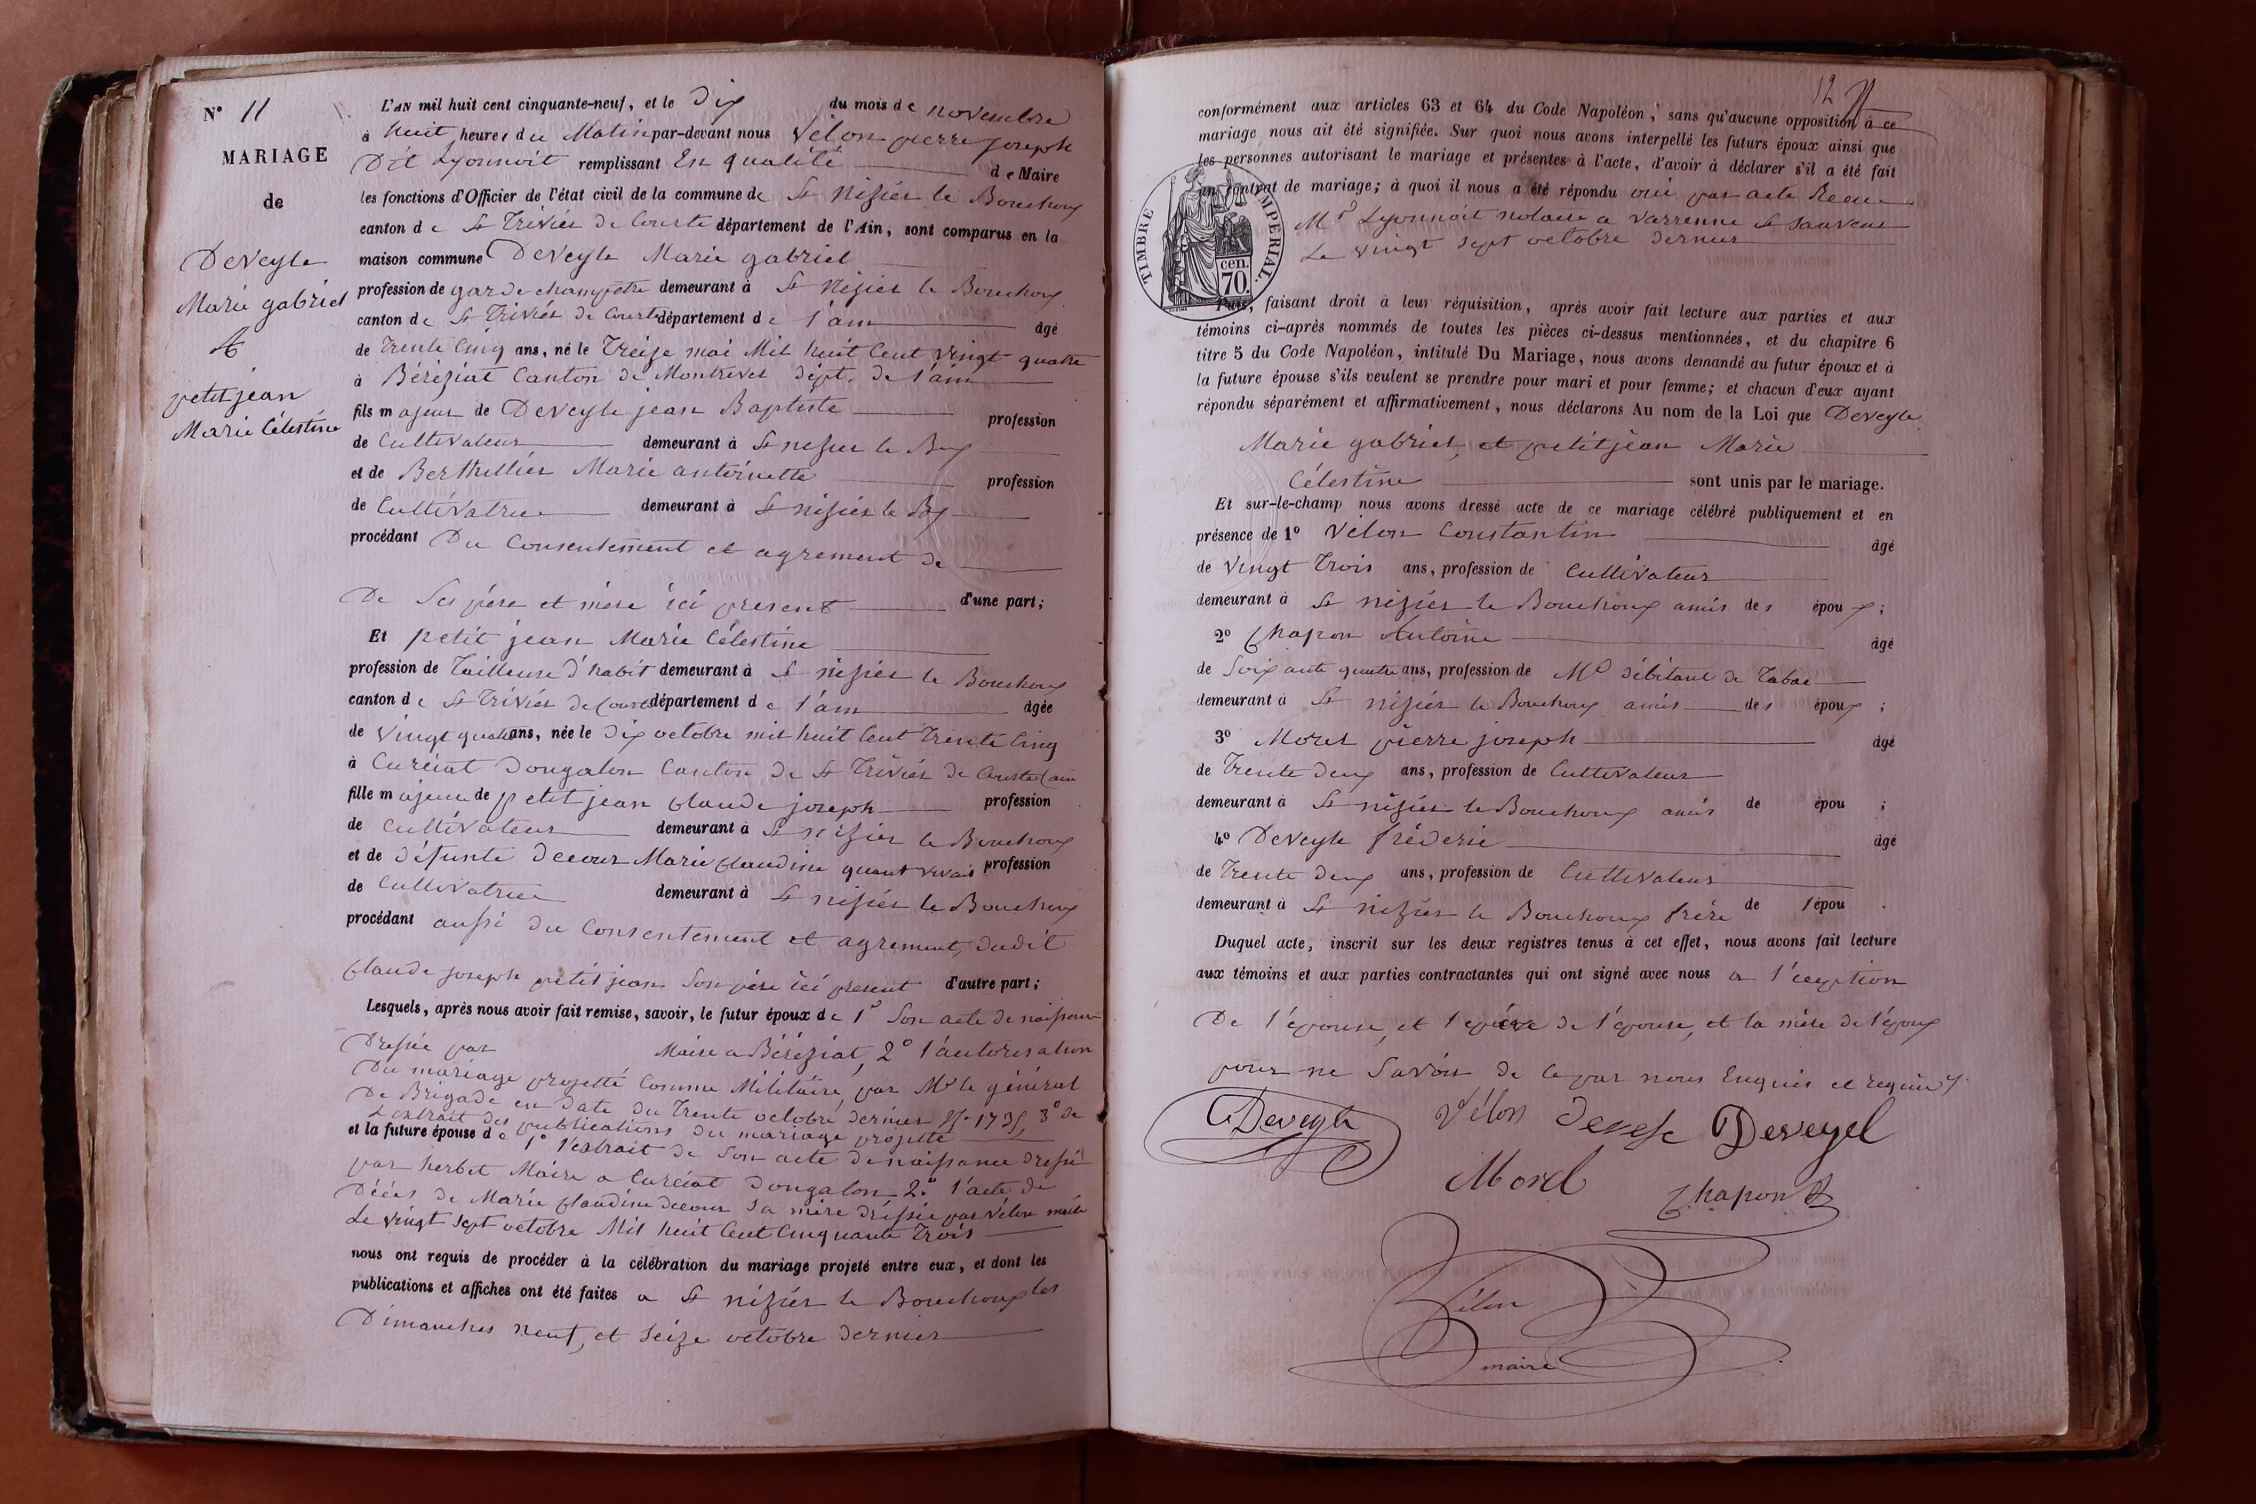 N° 11
MARIAGE
de
DeVeyle
Marie gabriel
&
petitjean
Marie Célestine
L'AN mil huit cent cinquante-neuf, et le Dix du mois de novembre
à huit heures du Matin par-devant nous Vélon pierre joseph
Dit Lyonnoit remplissant En qualité de Maire
les fonctions d'Officier de l'état civil de la commune de St Nizier le Bouchoux
canton de St Trivier de Courte département de l'Ain, sont comparus en la
maison commune DeVeyle Marie gabriel
profession de garde champetre demeurant à St Nizier le Bouchoux
canton de St Trivier de Courte département de l'ain âgé
de Trente Cinq ans, né le Treize mai Mil huit Cent Vingt quatre
à Béréziat Canton de Montrevel dépt. de l'ain
fils majeur de DeVeyle jean Baptiste profession
de Cultivateur demeurant à St nizier le Bx
et de Berthellier Marie antoinette profession
de Cultivatrice demeurant à St nizier le Bx
procédant Du Consentement et agrement de
De Ses père et mère ici present d'une part;
Et petit jean Marie Célestine
profession de Tailleuse d'habit demeurant à St nizier le Bouchoux
canton de St Trivier de Courte département de l'ain âgée
de Vingt quatre ans, née le Dix octobre mil huit Cent Trente Cinq
à Curciat Dongalon Canton de St Trivier de Courte (ain
fille majeure de petit jean Claude joseph profession
de Cultivateur demeurant à St nizier le Bouchoux
et de défunte Decour Marie Claudine quant vivais profession
de Cultivatrice demeurant à St nizier le Bouchoux
procédant aussi du Consentement et agrement, dudit
Claude joseph petit jean Son père ici present d'autre part;
Lesquels, après nous avoir fait remise, savoir, le futur époux de 1° Son acte de naissance
Dressée par Maire a Béréziat, 2° l'autorisation
Du mariage projetté Comme Militaire, par Mr le général
De Brigade en date du Trente octobre dernier N° 1735, 3° de
L'extrait des publications du mariage projetté
et la future épouse de 1° l'extrait de Son acte de naissance dressé
par herbet Maire a Curciat Dongalon 2° l'acte de
Décés de Marie Claudine decour Sa mère dréssée par Vélon maire
Le Vingt Sept octobre Mil huit Cent Cinquante Trois
nous ont requis de procéder à la célébration du mariage projeté entre eux, et dont les
publications et affiches ont été faites a St nizier le Bouchoux les
Dimanches neuf, et Seize octobre dernier
12
conformément aux articles 63 et 64 du Code Napoléon, sans qu'aucune opposition à ce
mariage nous ait été signifiée. Sur quoi nous avons interpellé les futurs époux ainsi que
les personnes autorisant le mariage et présentes à l'acte, d'avoir à déclarer s'il a été fait
un contrat de mariage; à quoi il nous a été répondu oui par acte Recu
Me Lyonnoit notaire a Varrenne St Sauveur
Le Vingt Sept octobre dernier
TIMBRE IMPÉRIAL.
cen.
70.
Puis, faisant droit à leur réquisition, après avoir fait lecture aux parties et aux
témoins ci-après nommés de toutes les pièces ci-dessus mentionnées, et du chapitre 6
titre 5 du Code Napoléon, intitulé Du Mariage, nous avons demandé au futur époux et à
la future épouse s'ils veulent se prendre pour mari et pour femme; et chacun d'eux ayant
répondu séparément et affirmativement, nous déclarons Au nom de la Loi que DeVeyle
Marie gabriel, et petitjean Marie
Célestine sont unis par le mariage.
Et sur-le-champ nous avons dressé acte de ce mariage célébré publiquement et en
présence de 1° Vélon Constantin âgé
de Vingt Trois ans, profession de Cultivateur
demeurant à St nizier le Bouchoux amis des époux;
2° Chapon Antoine âgé
de Soixante quatre ans, profession de Md débitant de Tabac
demeurant à St nizier le Bouchoux amis des époux;
3° Morel pierre joseph âgé
de Trente deux ans, profession de Cultivateur
demeurant à St nizier le Bouchoux amis de épou ;
4° DeVeyle fréderic âgé
de Trente deux ans, profession de Cultivateur
demeurant à St nizier le Bouchoux frère de l'épou .
Duquel acte, inscrit sur les deux registres tenus à cet effet, nous avons fait lecture
aux témoins et aux parties contractantes qui ont signé avec nous a l'éxeption
De l'épouse, et le père de l'épouse, et la mère de l'époux
pour ne Savoir de Ce par nous Enquis et requis
DeVeyle Vélon Deveyel
Morel Chapon
Vélon
maire